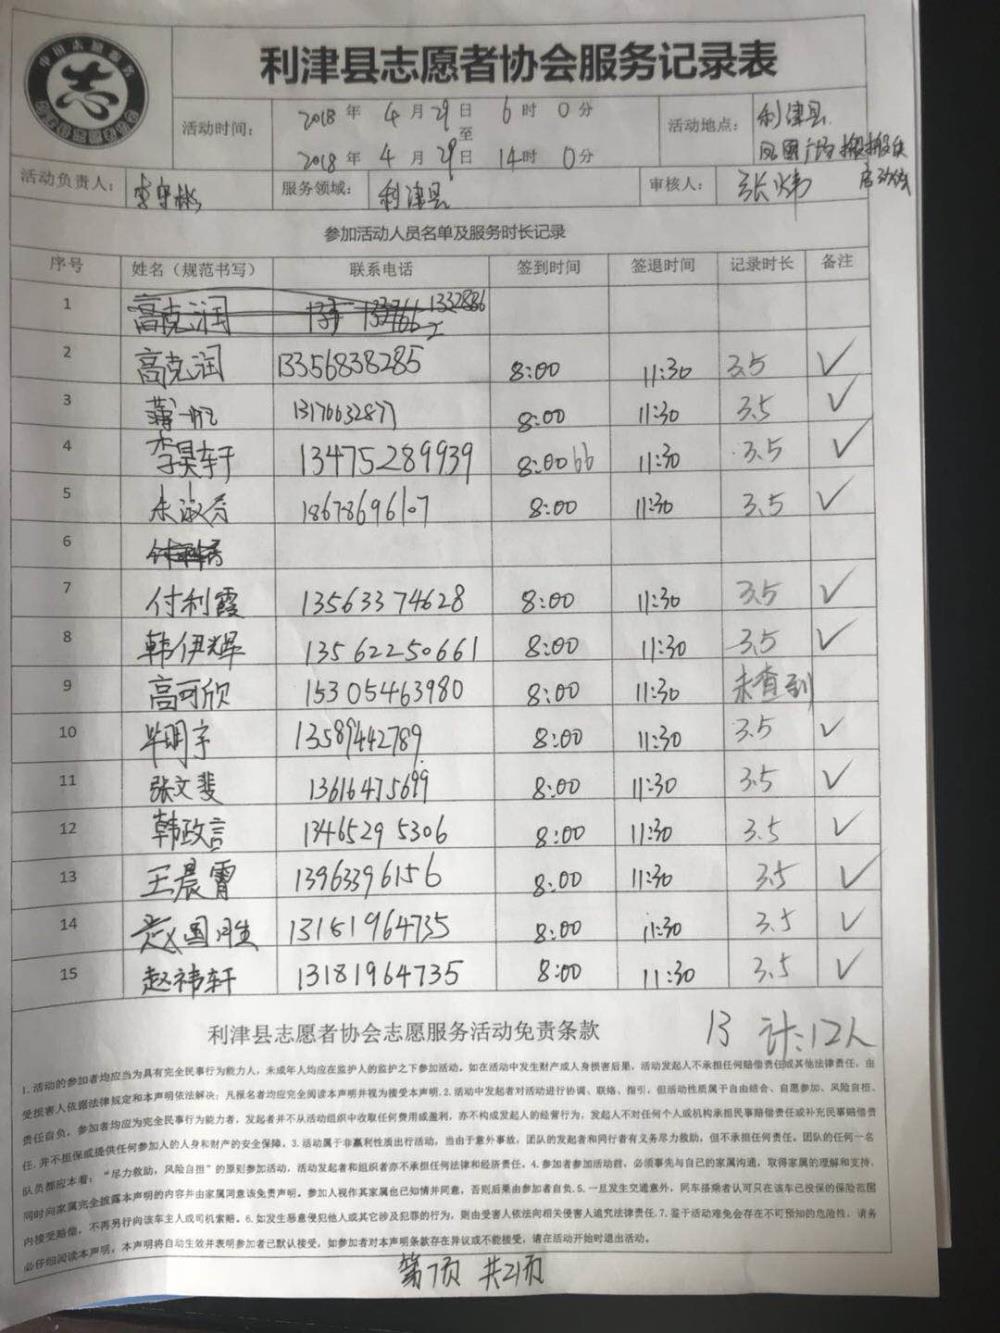 利津县志愿者协会服务记录表
活动时间: 2018 年 4 月 29 日 6 时 0 分
至
2018 年 4 月 29 日 14 时 0 分
活动地点: 利津县
凤凰广场
启动仪式
活动负责人: 李守彬 服务领域: 利津县 审核人: 张炜
参加活动人员名单及服务时长记录
序号 姓名（规范书写） 联系电话 签到时间 签退时间 记录时长 备注
1 高克润
2 高克润 13356838285 8:00 11:30 3.5 ✓
3 薄一帆 13176632877 8:00 11:30 3.5 ✓
4 李昊轩 13475289939 8:00 11:30 3.5 ✓
5 朱淑芬 18678696107 8:00 11:30 3.5 ✓
6
7 付利霞 13563374628 8:00 11:30 3.5 ✓
8 韩伊辉 13562250661 8:00 11:30 3.5 ✓
9 高可欣 15305463980 8:00 11:30 未查到
10 毕明宇 13589442789 8:00 11:30 3.5 ✓
11 张文斐 13616475699 8:00 11:30 3.5 ✓
12 韩政言 13465295306 8:00 11:30 3.5 ✓
13 王晨霄 13963396156 8:00 11:30 3.5 ✓
14 赵国胜 13181964735 8:00 11:30 3.5 ✓
15 赵祎轩 13181964735 8:00 11:30 3.5 ✓
利津县志愿者协会志愿服务活动免责条款 13 计:12人
1.活动的参加者均应当为具有完全民事行为能力人，未成年人均应在监护人的监护之下参加活动。如在活动中发生财产或人身损害后果，活动发起人不承担任何赔偿责任或其他法律责任，由
受损害人依据法律规定和本声明依法解决；凡报名者均应完全阅读本声明并视为接受本声明.2.活动中发起者对活动进行协调、联络、指引，但活动性质属于自由结合、自愿参加、风险自担、
责任自负，参加者均应为完全民事行为能力者，发起者并不从活动组织中收取任何费用或盈利，亦不构成发起人的经营行为，发起人不对任何个人或机构承担民事赔偿责任或补充民事赔偿责
任，并不担保或提供任何参加人的人身和财产的安全保障。3.活动属于非赢利性质出行活动，当由于意外事故，团队的发起者和同行者有义务尽力救助，但不承担任何责任。团队的任何一名
队员都应本着：“尽力救助，风险自担”的原则参加活动，活动发起者和组织者亦不承担任何法律和经济责任。4.参加者参加活动前，必须事先与自己的家属沟通，取得家属的理解和支持，
同时向家属完全披露本声明的内容并由家属同意该免责声明。参加人视作其家属也已知情并同意，否则后果由参加者自负.5.一旦发生交通意外，同车搭乘者认可只在该车已投保的保险范围
内接受赔偿，不再另行向该车主人或司机索赔。6.如发生恶意侵犯他人或其它涉及犯罪的行为，则由受害人依法向相关侵害人追究法律责任.7.鉴于活动难免会存在不可预知的危险性，请务
必仔细阅读本声明，本声明将自动生效并表明参加者已默认接受，如参加者对本声明条款存在异议或不能接受，请在活动开始时退出活动。
第7页 共21页